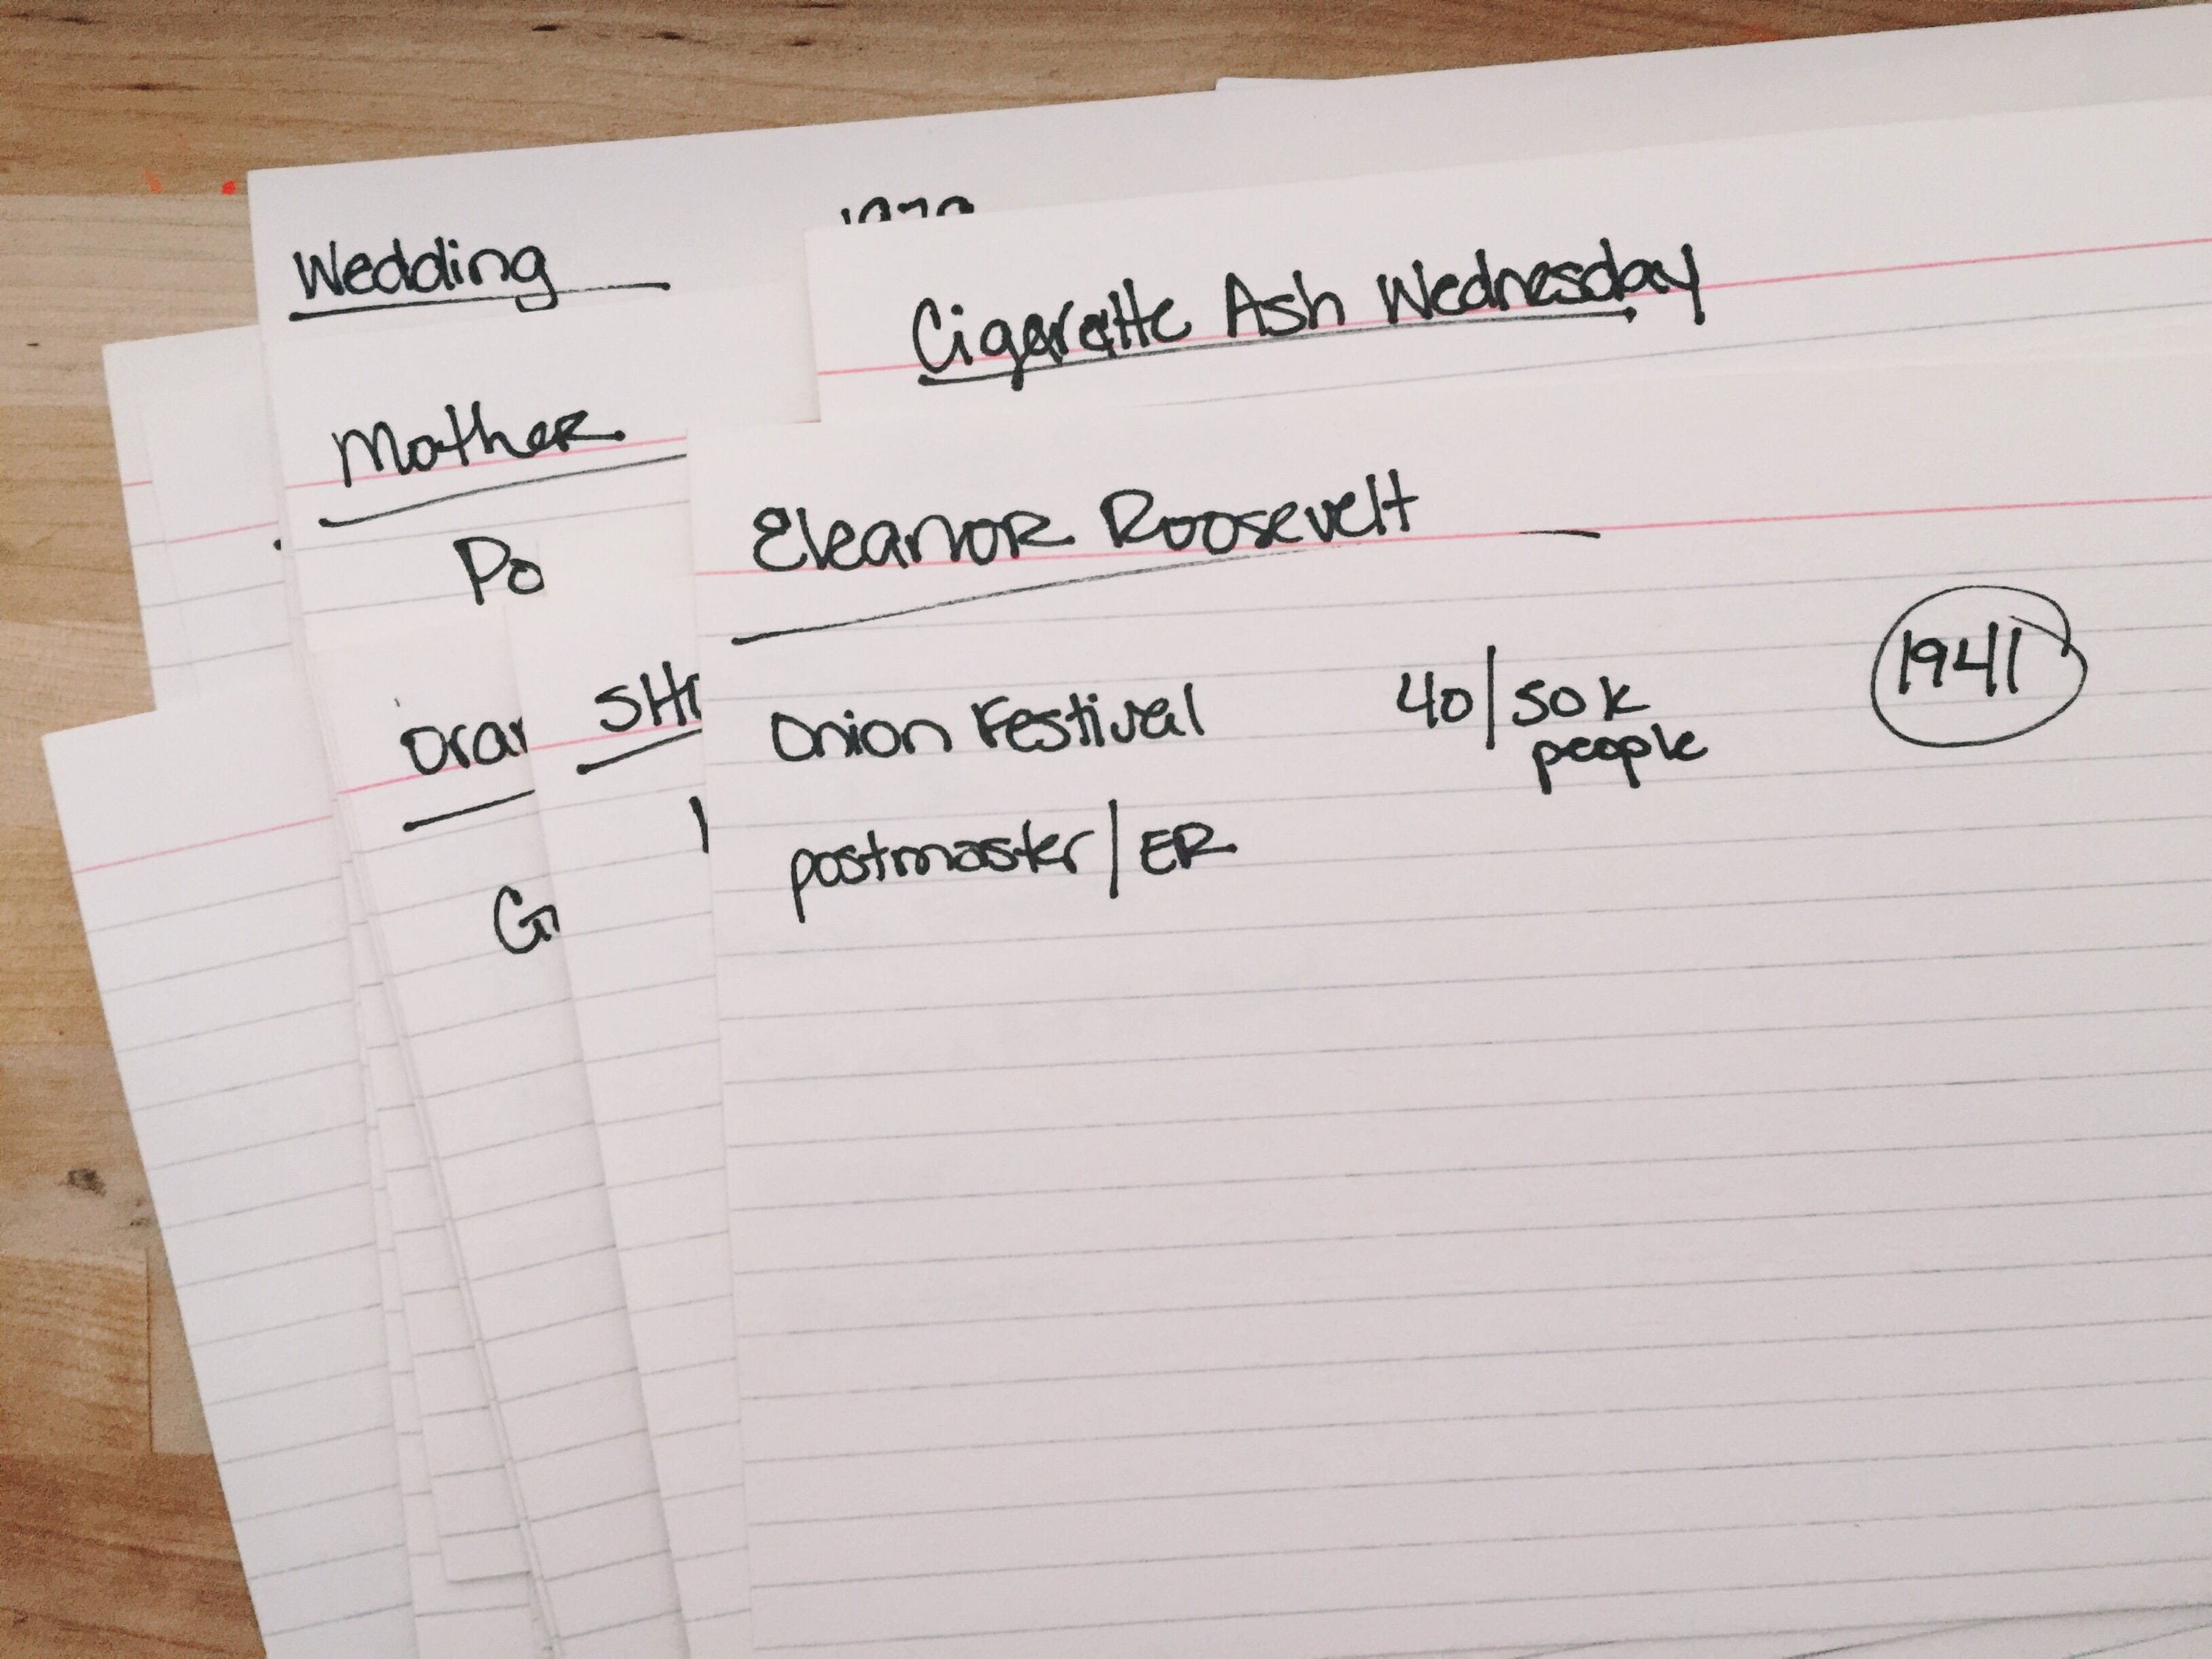 Wedding
Cigarette Ash Wednesday
Mother
Po
Eleanor Roosevelt
Onion Festival 40/50 k people 1941
postmaster/ER